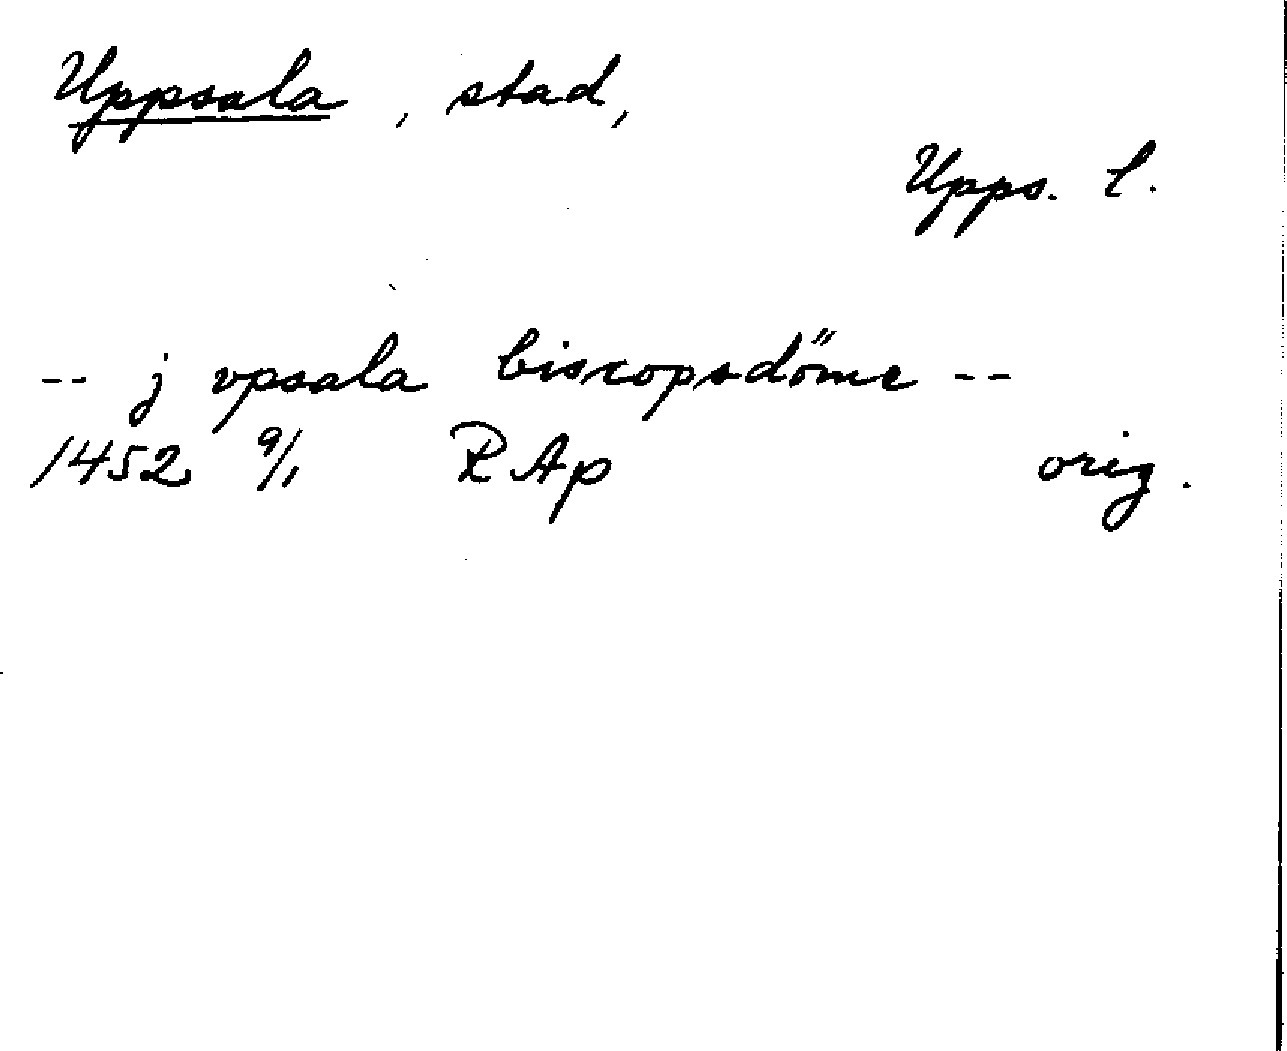 Uppsala, stad,
Upps. l.
-- j vpsala biscopsdőme --
1452 9/1 RAp orig.